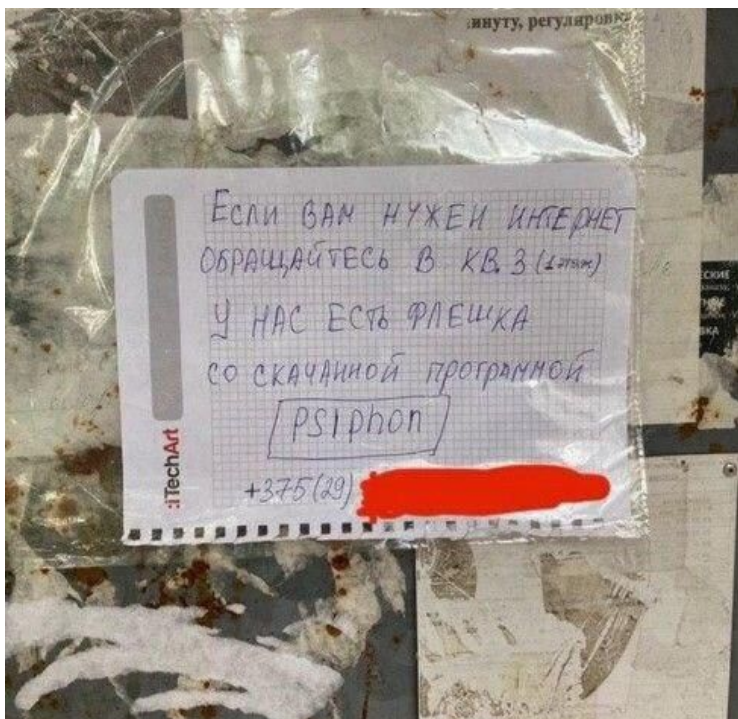 инуту, регулировка
ЕСЛИ ВАМ НУЖЕН ИНТЕРНЕТ
ОБРАЩАЙТЕСЬ В КВ. 3 (1 этаж)
У НАС ЕСТЬ ФЛЕШКА
СО СКАЧАННОЙ ПРОГРАММОЙ
PSIPHON
+375(29)
:iTechArt